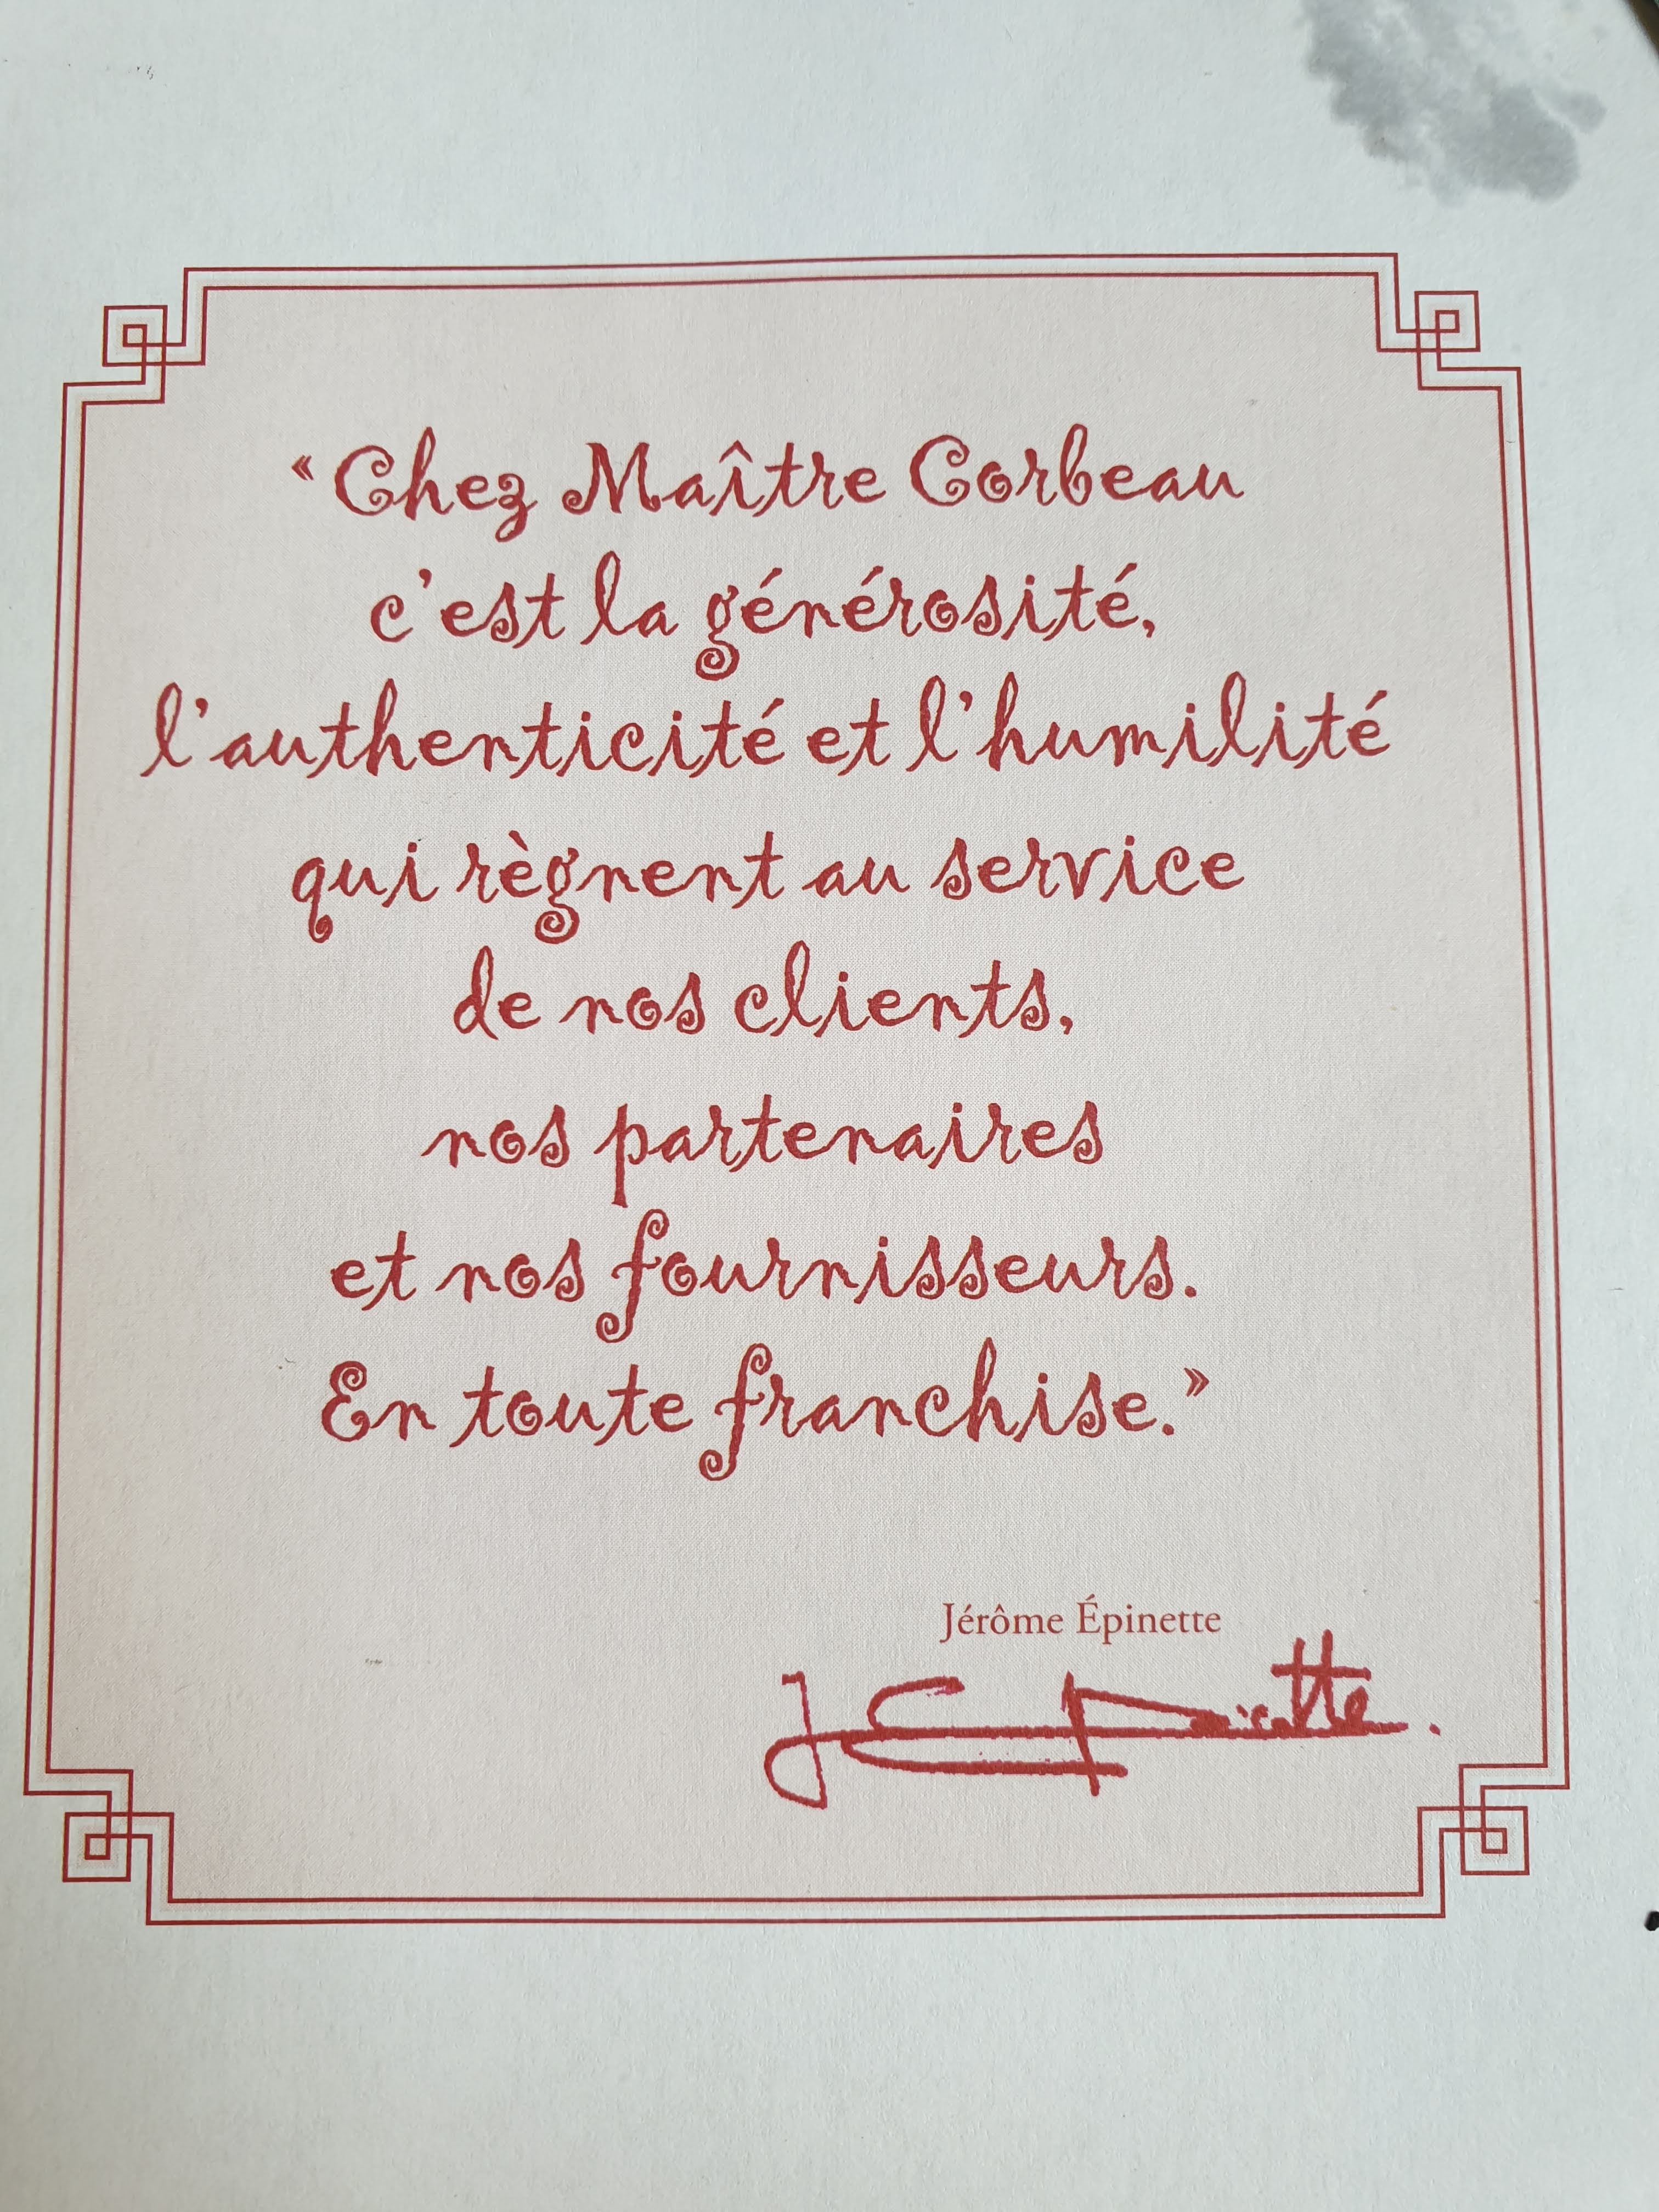 « Chez Maître Corbeau
c'est la générosité,
l'authenticité et l'humilité
qui règnent au service
de nos clients,
nos partenaires
et nos fournisseurs.
En toute franchise.»
Jérôme Épinette